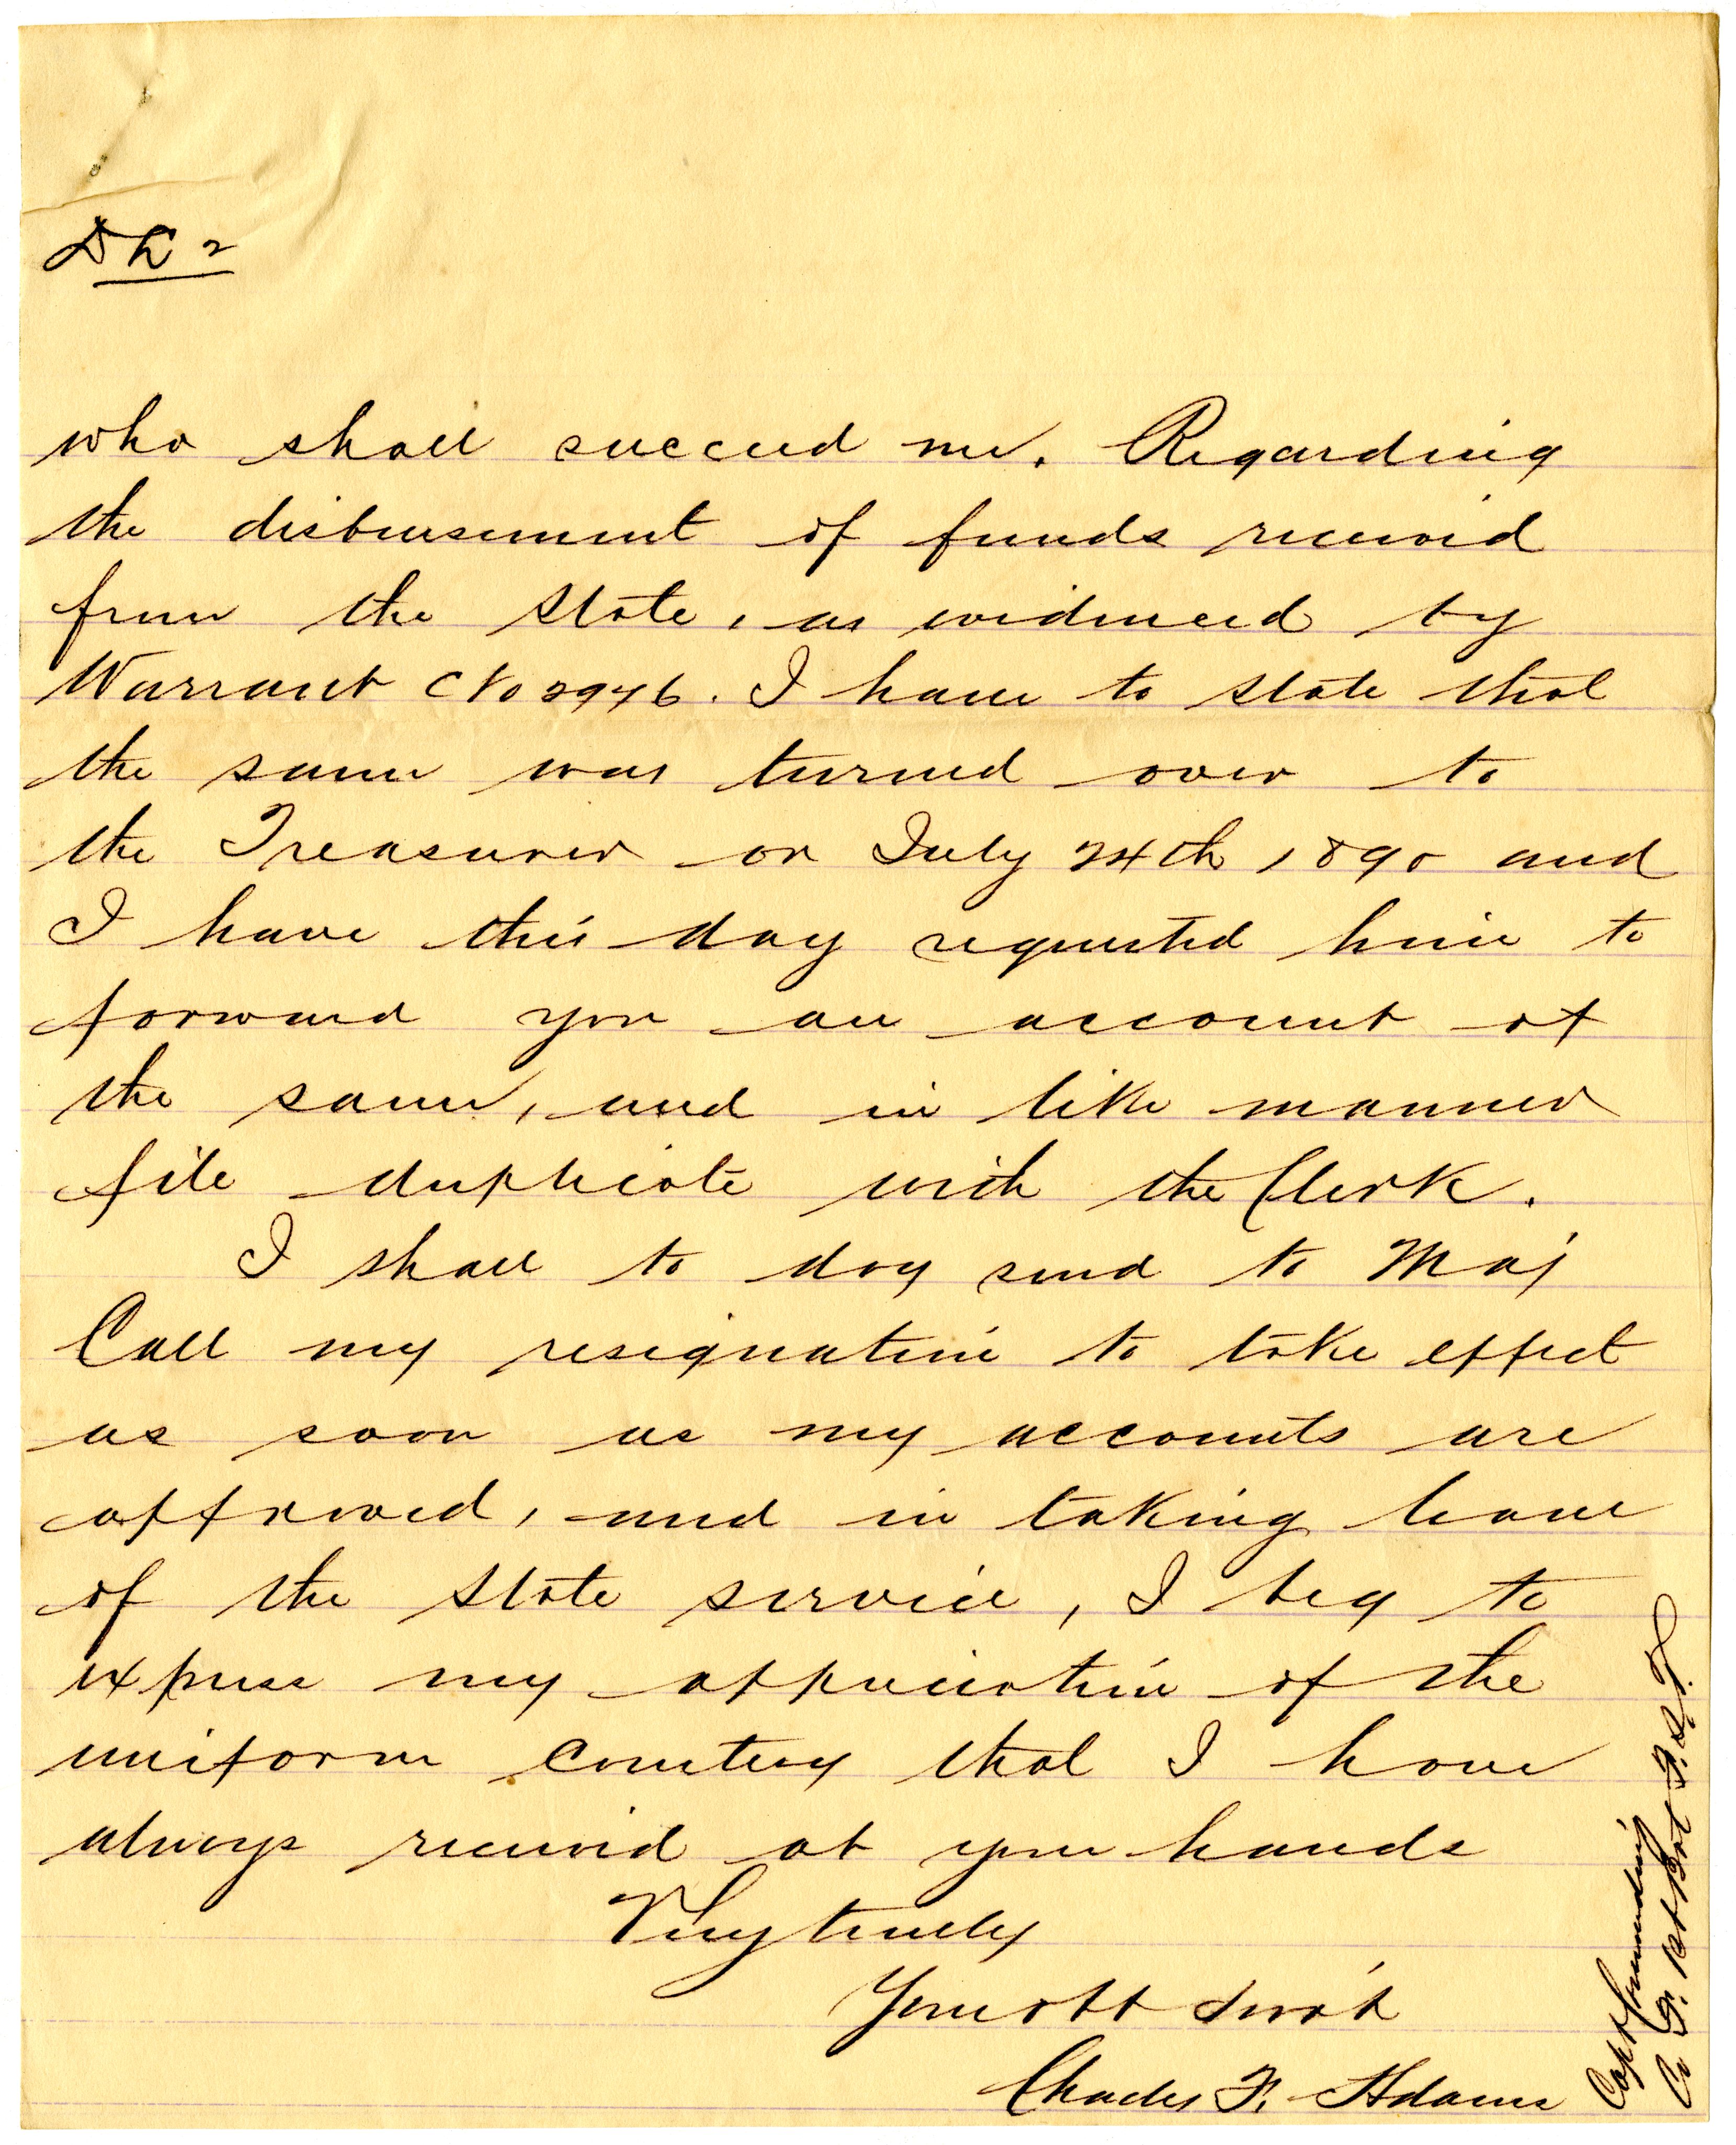 who shall succeed me. Regarding
the disbursement of funds received
from the State, as evidenced by
Warrant No 2946. I have to state that
the same was turned over to
the Treasurer on July 24th 1890 and
I have this day requested him to
forward you an account of
the same, and in like manner
file duplicate with the Clerk.
I shall to day send to Maj
Call my resignation to take effect
as soon as my accounts are
approved, and in taking leave
of the State service, I beg to
express my appreciation of the
uniform courtesy that I have
always received at your hands
Very truly
Your obt Servt
Charles F. Adams
Capt Commanding
Co F. 1st Bat F. S. T.